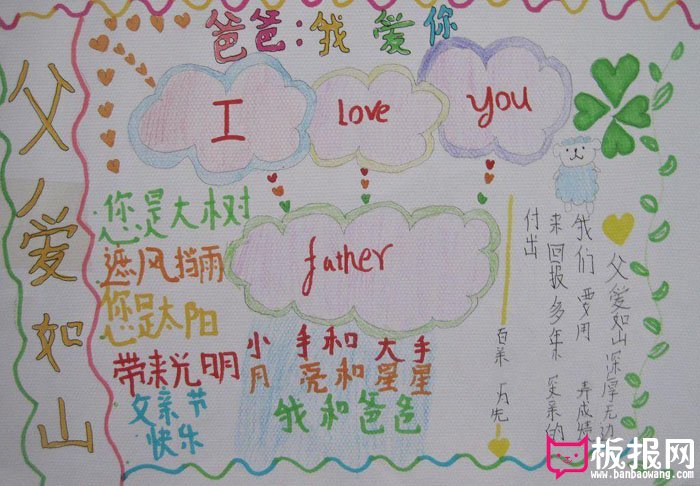 爸爸:我爱你
父爱如山
I love you
father
您是大树
遮风挡雨
您是太阳
带来光明
父亲节
快乐
小手和大手
月亮和星星
我和爸爸
父爱如山深厚无边
我们要用
来回报多年父亲的
付出
板报网
www.banbaowang.com